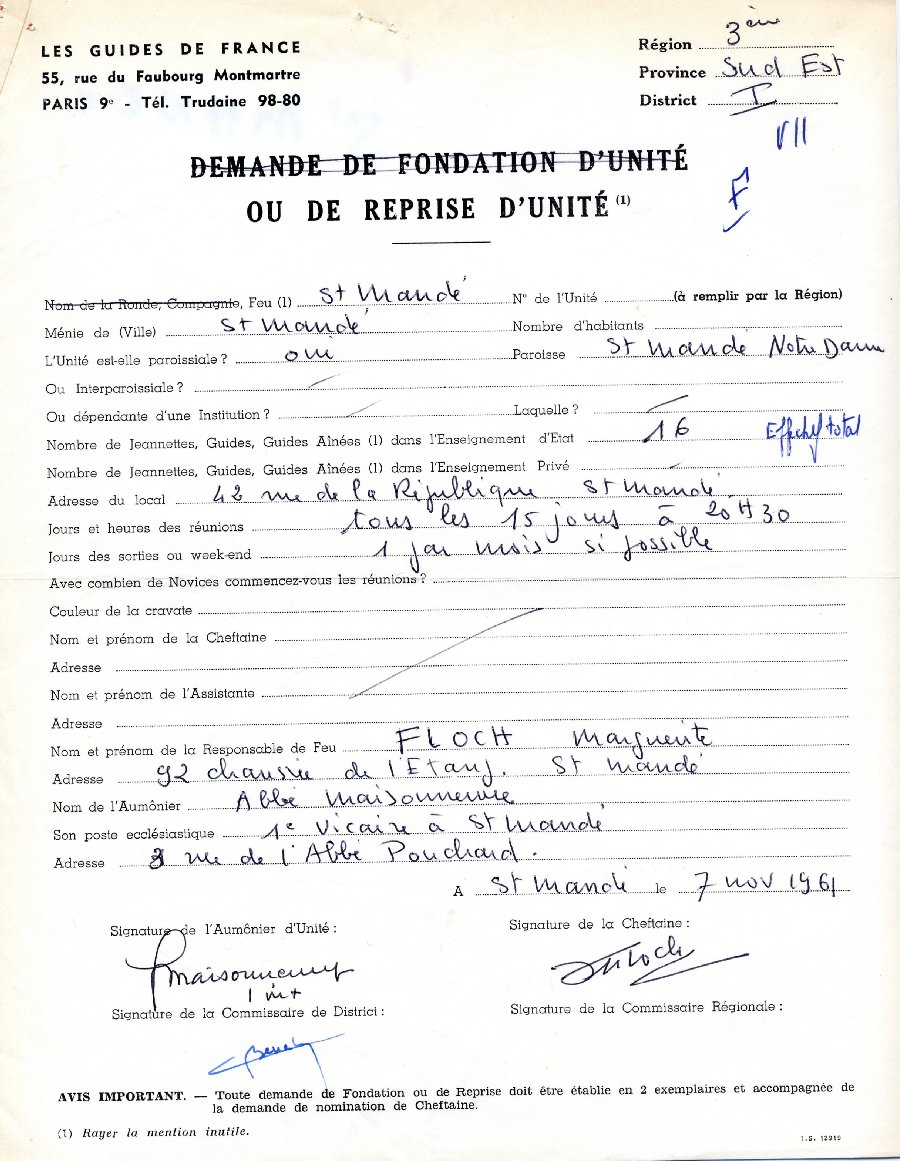 LES GUIDES DE FRANCE
55, rue du Faubourg Montmartre
PARIS 9e - Tél. Trudaine 98-80
Région 3ème
Province Sud Est
District I
VII
DEMANDE DE FONDATION D'UNITÉ
OU DE REPRISE D'UNITÉ (1)
F
Nom de la Ronde, Compagnie, Feu (1) St Mandé N° de l'Unité (à remplir par la Région)
Ménie de (Ville) St Mandé Nombre d'habitants
L'Unité est-elle paroissiale ? oui Paroisse St Mandé Notre Dame
Ou Interparoissiale ?
Ou dépendante d'une Institution ? Laquelle ?
Nombre de Jeannettes, Guides, Guides Aînées (1) dans l'Enseignement d'Etat 16 Effectif total
Nombre de Jeannettes, Guides, Guides Aînées (1) dans l'Enseignement Privé
Adresse du local 42 rue de la République St Mandé
Jours et heures des réunions tous les 15 jours à 20H30
Jours des sorties ou week-end 1 par mois si possible
Avec combien de Novices commencez-vous les réunions ?
Couleur de la cravate
Nom et prénom de la Cheftaine
Adresse
Nom et prénom de l'Assistante
Adresse
Nom et prénom de la Responsable de Feu FLOCH Marguerite
Adresse 92 chaussée de l'Etang. St Mandé
Nom de l'Aumônier Abbé Maisonneuve
Son poste ecclésiastique 1e Vicaire à St Mandé
Adresse 3 rue de l'Abbé Pouchard.
A St Mandé le 7 nov 1961
Signature de l'Aumônier d'Unité : Signature de la Cheftaine :
Maisonneuve Floch
Signature de la Commissaire de District : Signature de la Commissaire Régionale :
AVIS IMPORTANT. — Toute demande de Fondation ou de Reprise doit être établie en 2 exemplaires et accompagnée de
la demande de nomination de Cheftaine.
(1) Rayer la mention inutile.
I.G. 12919